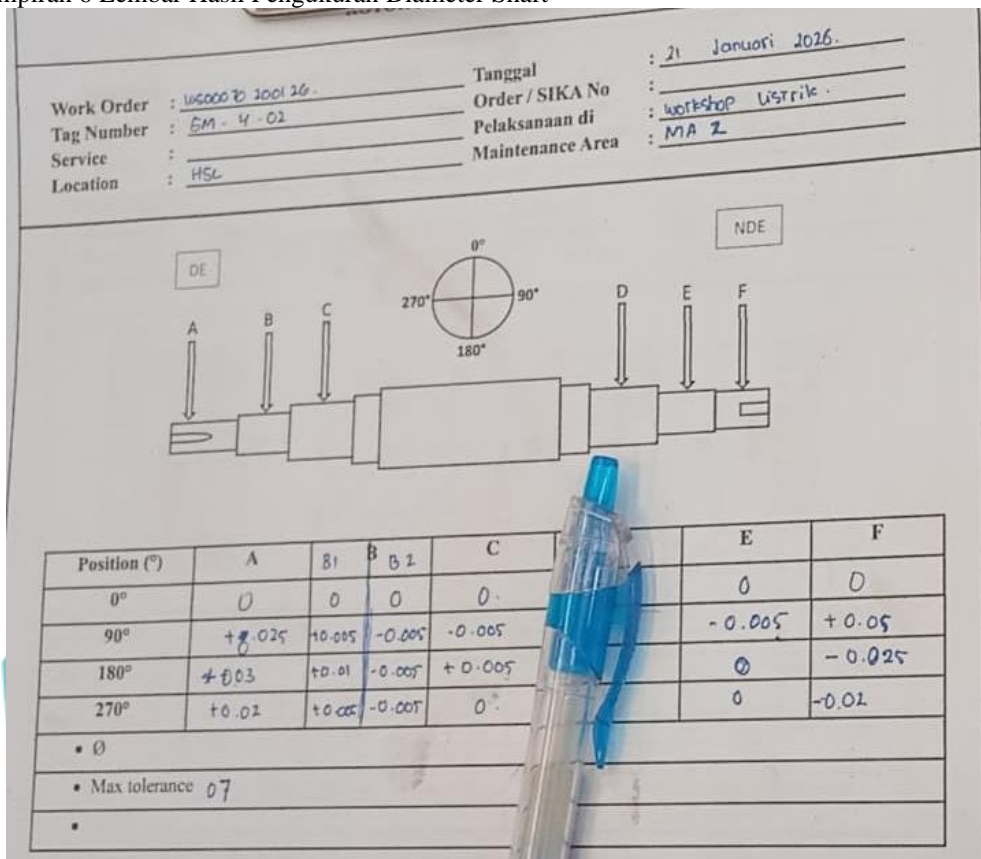 Lampiran 6 Lembar Hasil Pengukuran Diameter Shaft
Work Order :
Tag Number : EM - 4 - 02
Service :
Location : HSC
Tanggal : 21 Januari 2026.
Order / SIKA No :
Pelaksanaan di : workshop Listrik.
Maintenance Area : MA 2
DE
NDE
0°
270° 90°
180°
A B C D E F
Position (°) A B1 B B2 C E F
0° 0 0 0 0. 0 0
90° +0.025 +0.005 -0.005 -0.005 -0.005 +0.05
180° +0.03 +0.01 -0.005 +0.005 0 -0.025
270° +0.02 +0.005 -0.005 0. 0 -0.02
• Ø
• Max tolerance 07
•